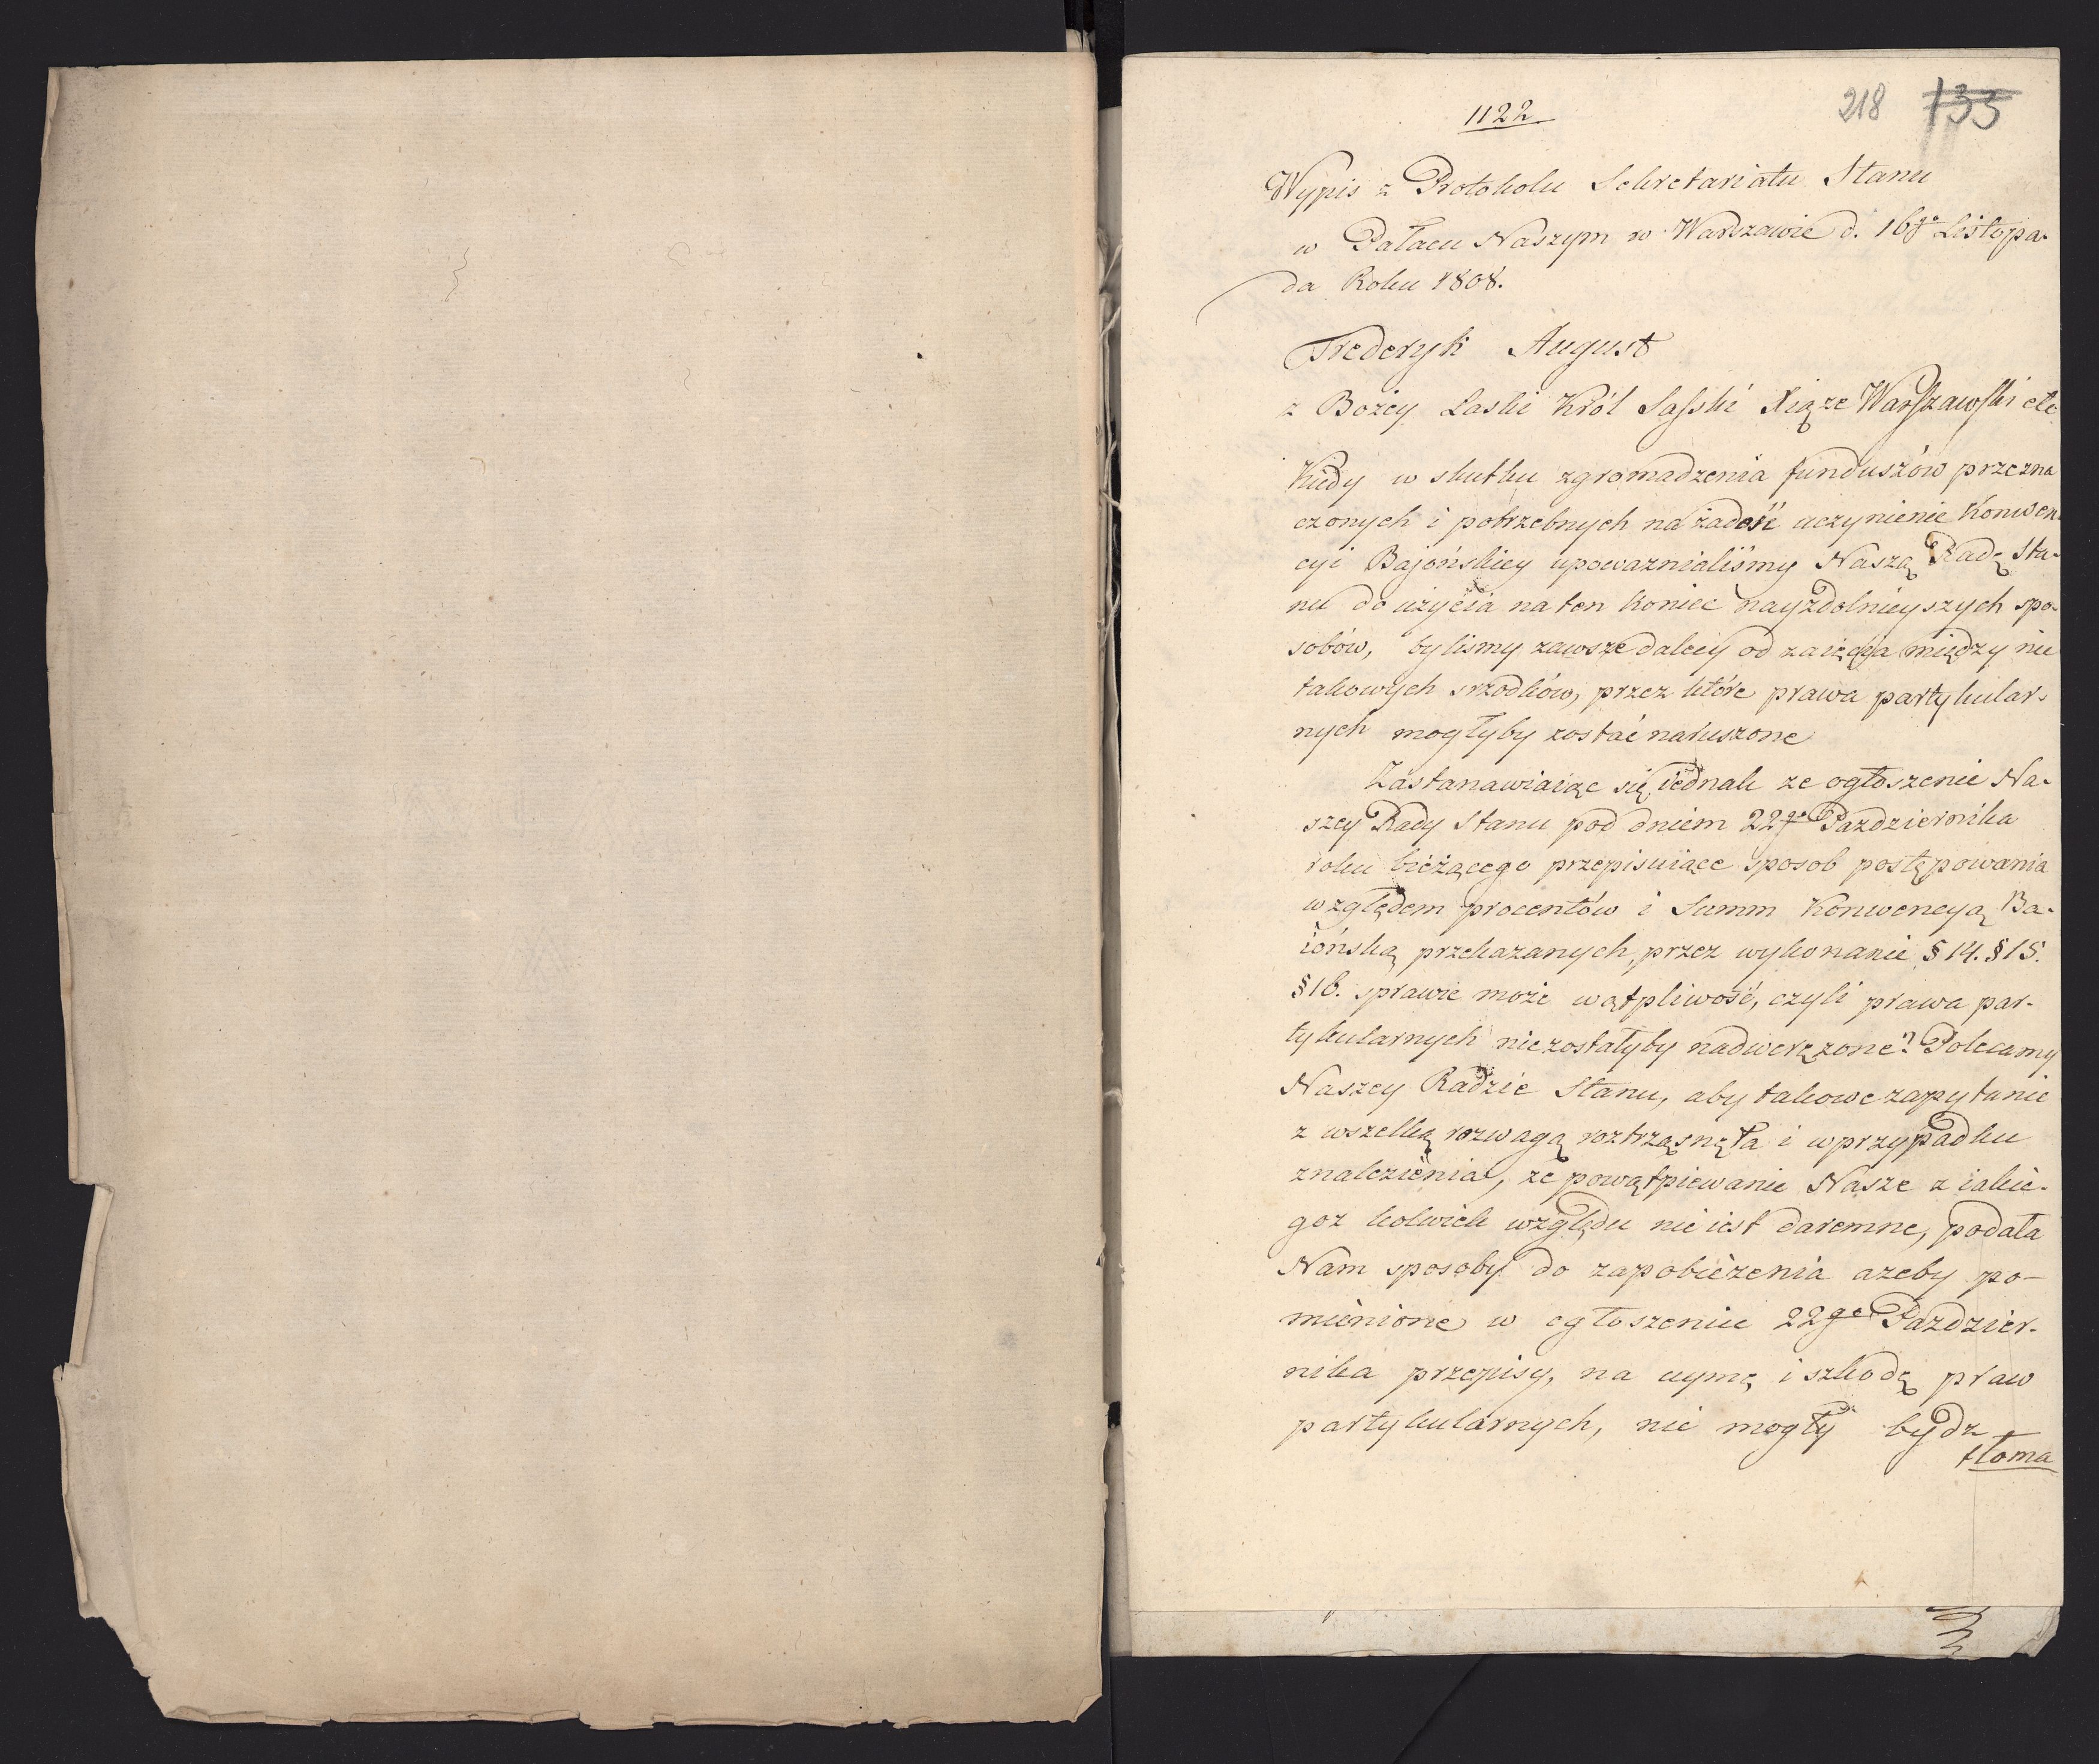 1122
218 133
Wypis z Protokolu Sekretariatu Stanu
w Pałacu Naszym w Warszawie d. 16go Listopa-
da Roku 1808.
Frederyk August
z Bożey Łaski Król Saski Xiąze Warszawski etc
Kiedy w skutku zgromadzenia funduszów przezna
czonych i potrzebnych na zadość uczynienie Konwen-
cyi Bajońskiey upoważnialiśmy Naszą Radę Sta-
nu do użycia na ten koniec nayzdolnieyszych spo-
sobów, byliśmy zawsze dalecy od zaięcia między nie
takowych srzodków, przez które prawa partykular-
nych mogłyby zostać naruszone
Zastanawiaiąc się iednak ze ogłoszenie Na-
szey Rady Stanu pod dniem 22go Pazdziernika
roku bieżącego przepisuiące sposob postępowania
względem procentów i Summ Konwencyą Ba-
iońską przekazanych, przez wykonanie § 14. § 15.
§ 16. sprawie może wątpliwość, czyli prawa par-
tykularnych nie zostałyby nadwerężone? Polecamy
Naszey Radzie Stanu, aby takowe zapytanie
z wszelką rozwagą roztrząsnęła i w przypadku
znalezienia, ze powątpiewanie Nasze z iakie-
goz kolwiek względu nie iest daremne, podała
Nam sposoby do zapobieżenia azeby po-
mienione w ogłoszeniu 22go Pazdzier-
nika przepisy, na uymę i szkodę praw
partykularnych, nie mogły bydz
tłoma